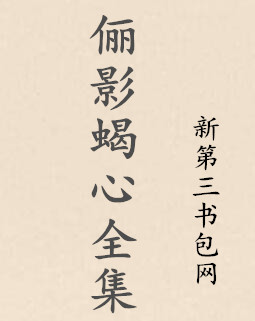 俪影蝎心全集
新第三书包网